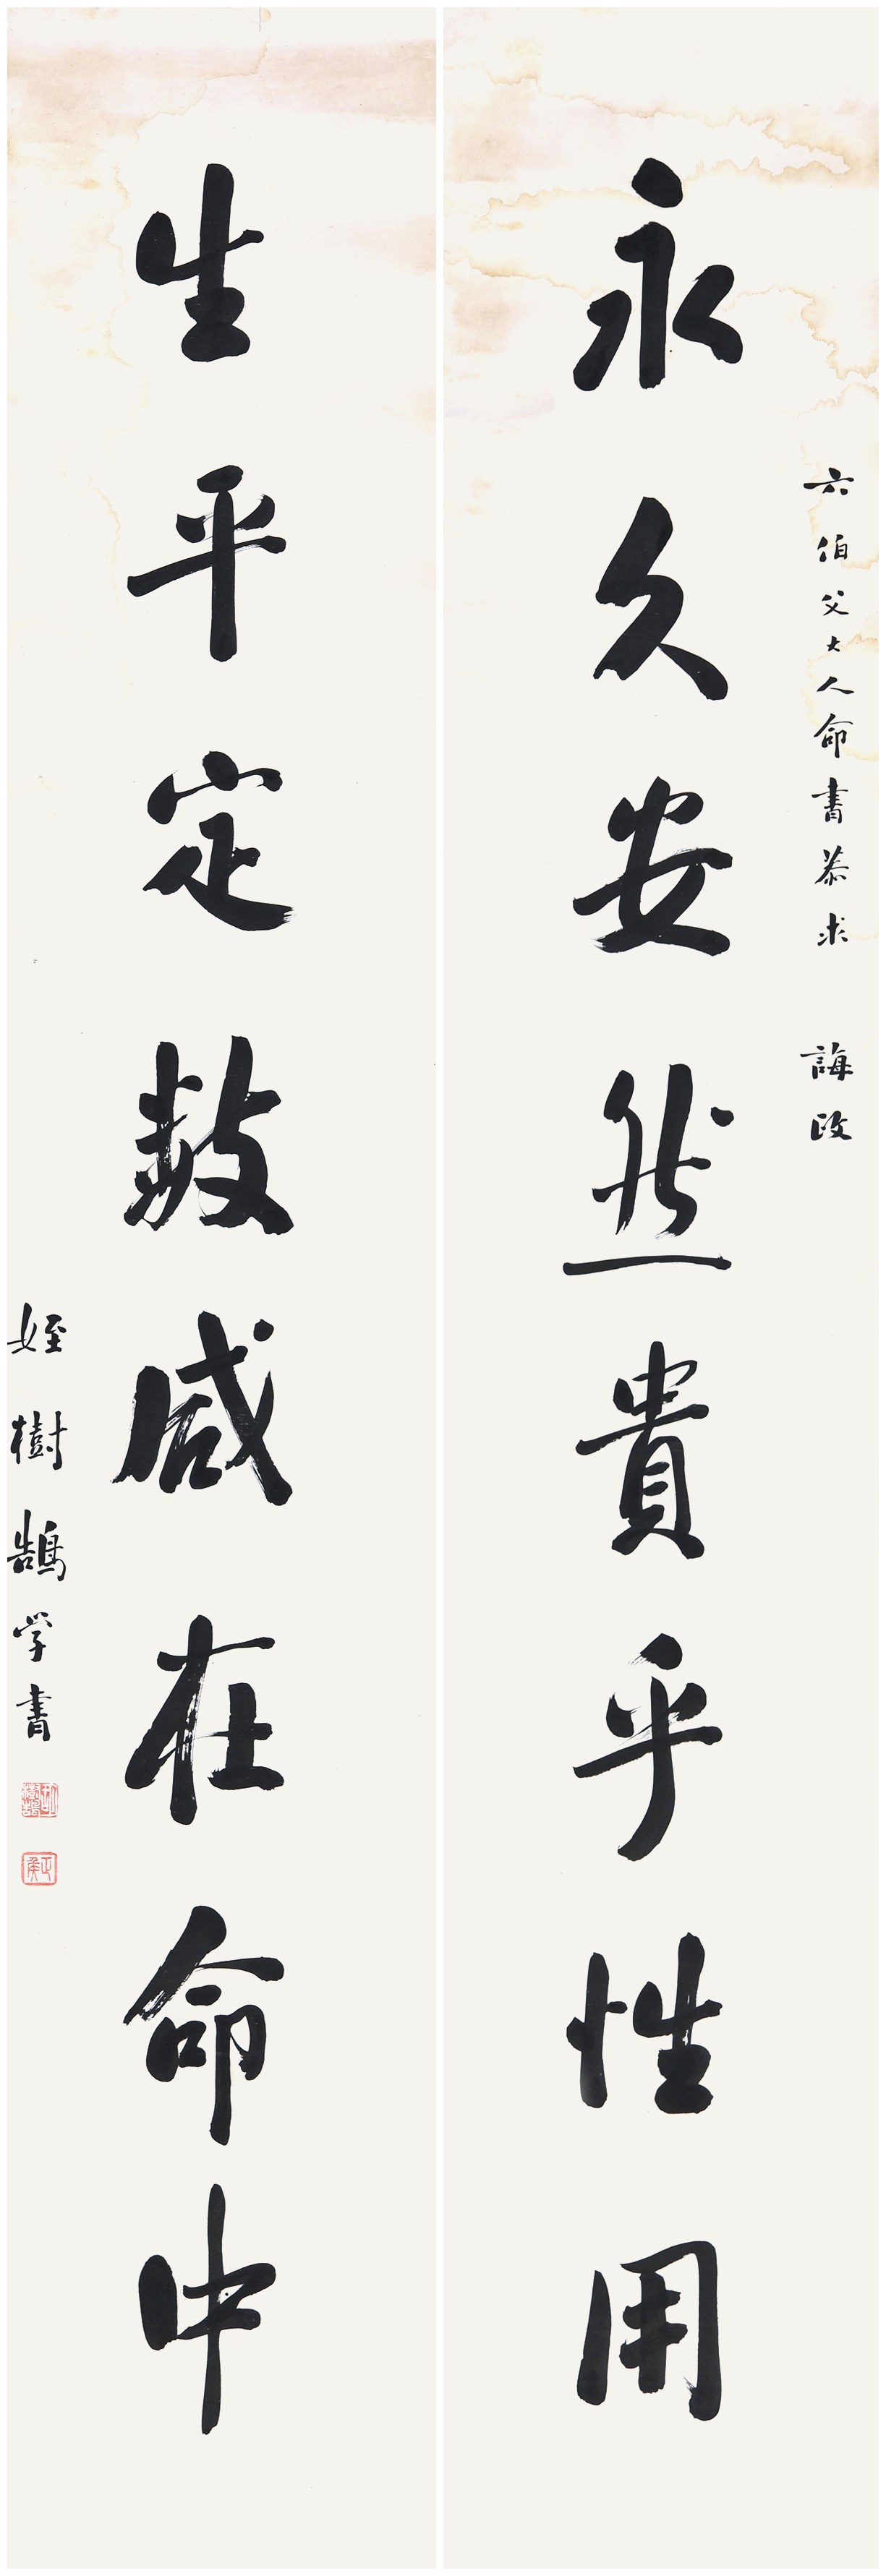 六伯父大人命書恭求　誨政
永久安然貴乎性用
生平定数咸在命中
姪樹鵠学書